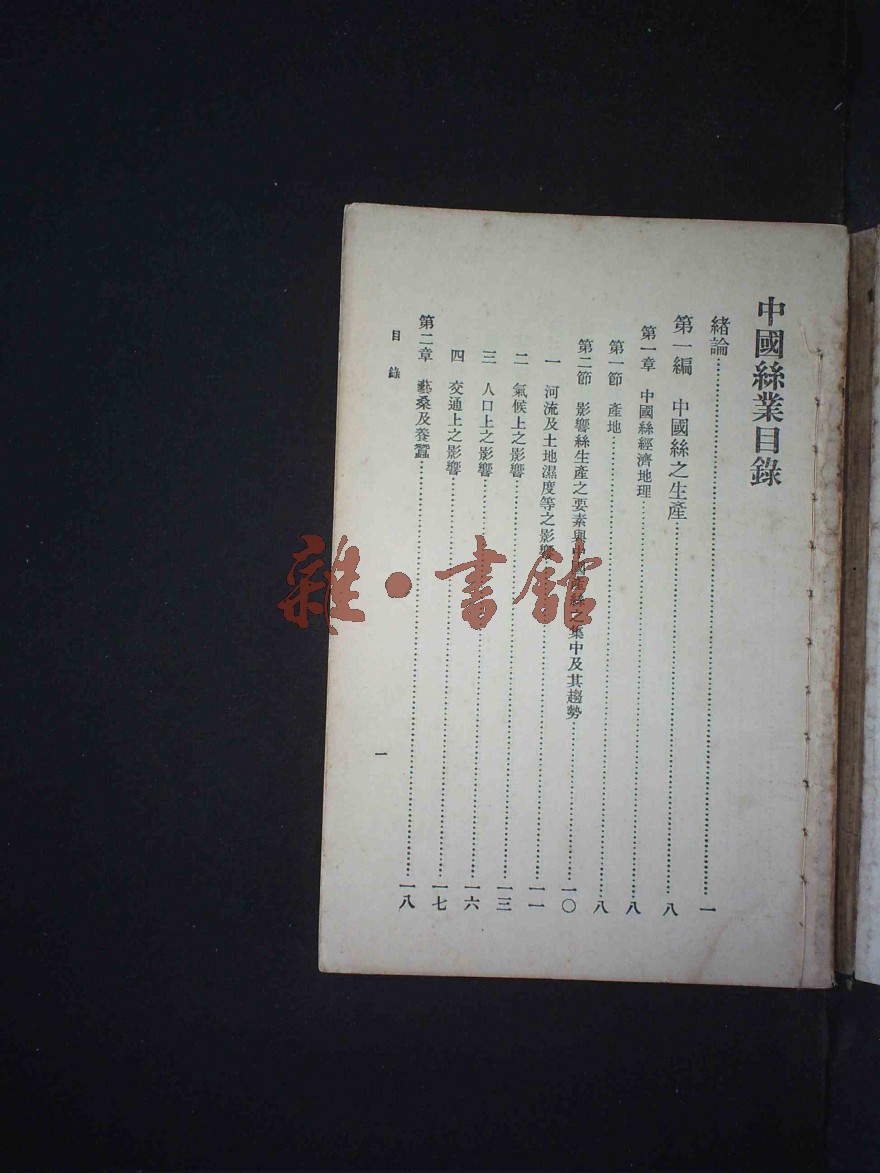 中國絲業目錄
緒論……一
第一編 中國絲之生產……八
第一章 中國絲經濟地理……八
第一節 產地……八
第二節 影響絲生產之要素與中國絲之集中及其趨勢……一〇
一 河流及土地濕度等之影響……一一
二 氣候上之影響……一三
三 人口上之影響……一六
四 交通上之影響……一七
第二章 藝桑及養蠶……一八
目錄
一
雜·書館